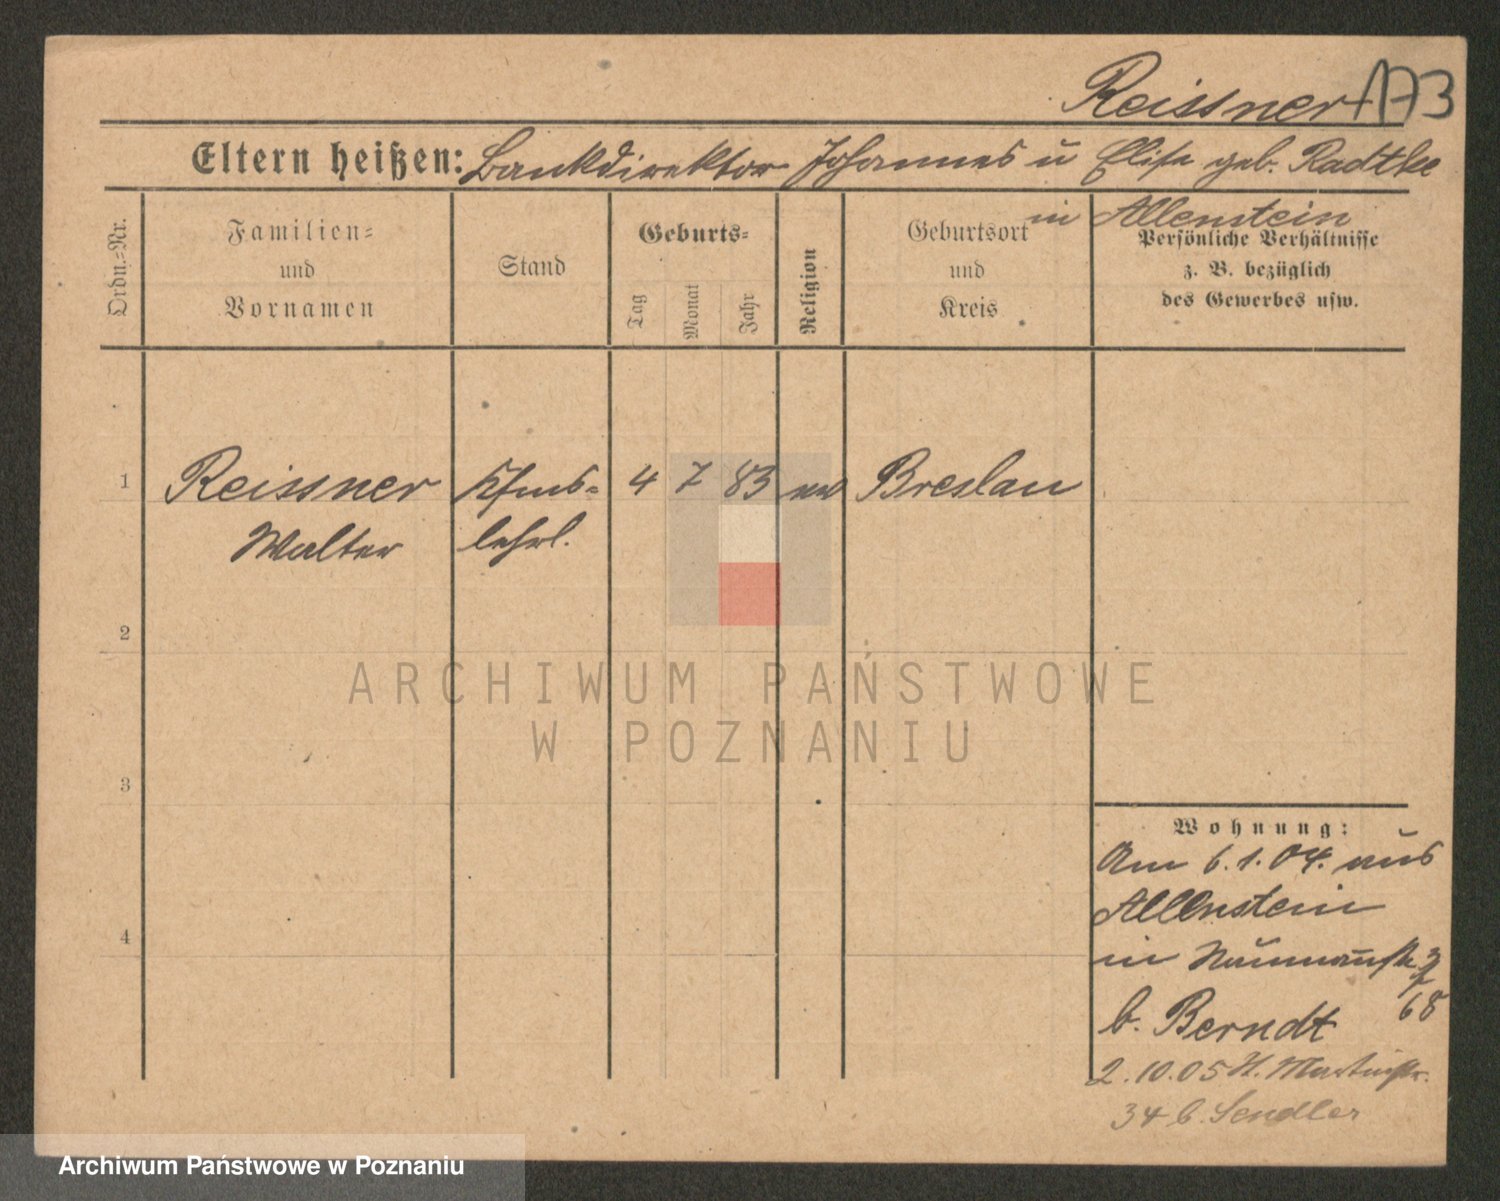 Reissner 173
Eltern heißen: Bankdirektor Johannes u Elise geb. Radtke
in Allenstein
Ordn.-Nr.
Familien-
und
Vornamen
Stand
Geburts-
Tag
Monat
Jahr
Religion
Geburtsort
und
Kreis
Persönliche Verhältnisse
z. B. bezüglich
des Gewerbes usw.
1 Reissner Kfms- 4 7 83 Breslau
Walter lehrl.
2
ARCHIWUM PAŃSTWOWE
W POZNANIU
3
Wohnung:
Am 6.1.04. aus
Allenstein
in Naumannstr.
68
b. Berndt
2.10.05 St. Martinstr.
34 b. Sendler
4
Archiwum Państwowe w Poznaniu